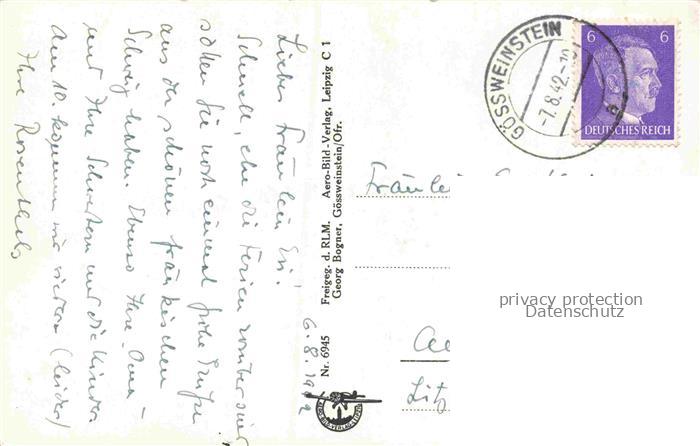 Liebes Fräulein Evi!
Schnell, ehe die Ferien vorüber sind
sollen Sie noch einmal frohe Grüße
aus der schönen fränkischen
Schweiz haben. Ebenso Ihre Oma
und Ihre Schwestern und die Kinder
Am 10. kommen wir wieder (leider)
Ihre Rosenthals
6.8.1942
Freigeg. d. RLM. Aero-Bild-Verlag, Leipzig C 1
Georg Bogner, Gössweinstein/Ofr.
Nr. 6945
GÖSSWEINSTEIN
-7.8.42-10
a
6 6
DEUTSCHES REICH
Fräulein
privacy protection
Datenschutz
Litz